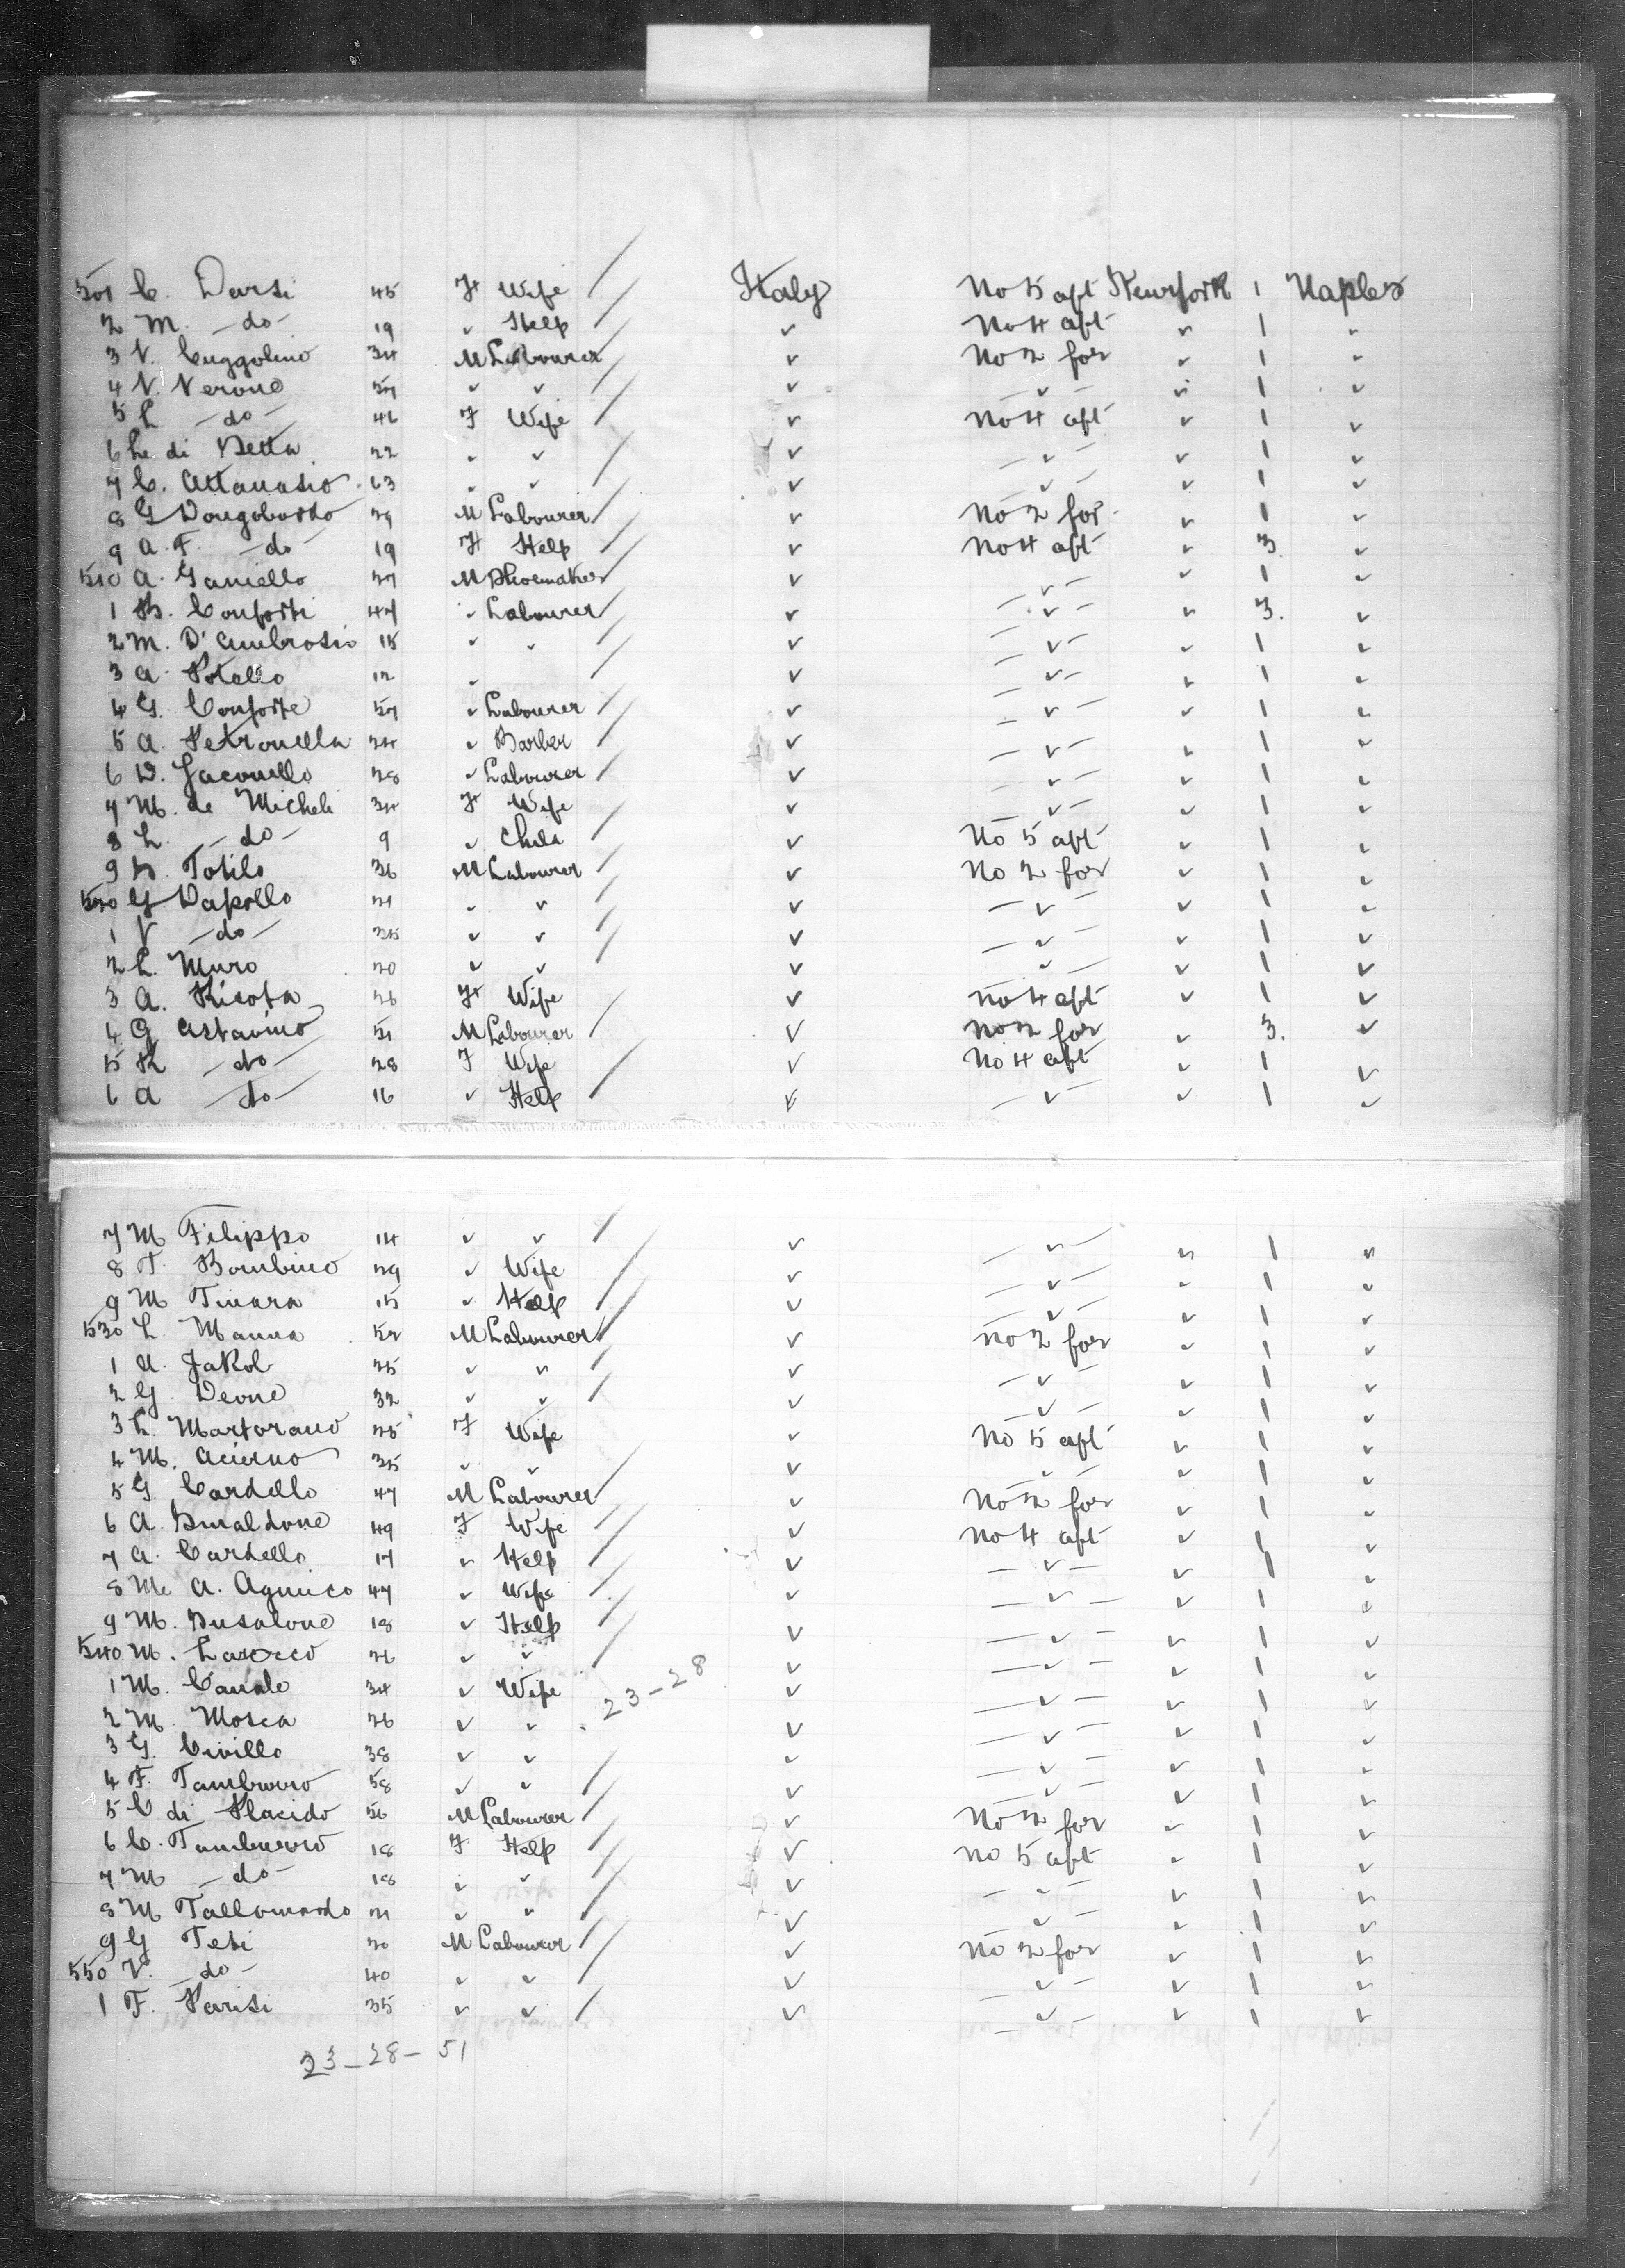 501 C. Darsi 45 F Wife / Italy No 5 aft Newyork 1 Naples
2 M. -do- 19 ✓ Help / ✓ No 4 aft ✓ 1 ✓
3 V. Cuggolino 34 M Labourer / ✓ No 2 for ✓ 1 ✓
4 V. Verone ✓ ✓ / ✓ -✓- ✓ 1 ✓
5 L -do- 46 F Wife / ✓ No 4 aft ✓ 1 ✓
6 di Betta 22 ✓ ✓ / ✓ -✓- ✓ 1 ✓
7 C. Attanasio 63 ✓ ✓ / ✓ -✓- ✓ 1 ✓
8 G 29 M Labourer / ✓ No 2 for ✓ 1 ✓
9 A. F. -do- 19 F Help / ✓ No 4 aft ✓ 3. ✓
510 A. Ganiello 27 M Shoemaker / ✓ -✓- ✓ 1 ✓
1 B. Conforti 47 ✓ Labourer / ✓ -✓- ✓ 3. ✓
2 M. D'Ambrosio 15 ✓ ✓ / ✓ -✓- ✓ 1 ✓
3 A. 12 ✓ / ✓ -✓- ✓ 1 ✓
4 G. Conforte 57 ✓ Labourer / ✓ -✓- ✓ 1 ✓
5 A. Petronella 24 ✓ Barber / ✓ -✓- ✓ 1 ✓
6 D. Jaconello 28 ✓ Labourer / ✓ -✓- ✓ 1 ✓
7 M. de Micheli 34 F Wife / ✓ -✓- ✓ 1 ✓
8 L. -do- 9 ✓ Child / ✓ No 5 aft ✓ 1 ✓
9 Totilo 36 M Labourer / ✓ No 2 for ✓ 1 ✓
520 G Dapollo 21 ✓ ✓ / ✓ -✓- ✓ 1 ✓
1 V -do- ✓ ✓ / ✓ -✓- ✓ 1 ✓
2 L. Muro 20 ✓ ✓ / ✓ -✓- ✓ 1 ✓
3 A. Ricota 26 F Wife / ✓ No 4 aft ✓ 1 ✓
4 G Astavino 51 M Labourer / ✓ No 2 for ✓ 3. ✓
5 R -do- 28 F Wife / ✓ No 4 aft ✓ 1 ✓
6 A -do- 16 ✓ Help / ✓ -✓- ✓ 1 ✓
7 M Filippo 14 ✓ ✓ / ✓ -✓- ✓ 1 ✓
8 T. Bombino 29 ✓ Wife / ✓ -✓- ✓ 1 ✓
9 M Tinara 15 ✓ Help / ✓ -✓- ✓ 1 ✓
530 L Manna 52 M Labourer / ✓ No 2 for ✓ 1 ✓
1 A. Jakob 25 ✓ ✓ / ✓ -✓- ✓ 1 ✓
2 G. Deone 32 ✓ ✓ / ✓ -✓- ✓ 1 ✓
3 L. Martorano 25 F Wife ✓ No 5 aft ✓ 1 ✓
4 M. Acierno 35 ✓ ✓ / ✓ -✓- ✓ 1 ✓
5 G. Cardello 47 M Labourer / ✓ No 2 for ✓ 1 ✓
6 A. 49 F Wife / ✓ No 4 aft ✓ 1 ✓
7 A. Cardello 17 ✓ Help / ✓ -✓- ✓ 1 ✓
8 A. 47 ✓ Wife / ✓ -✓- ✓ 1 ✓
9 M. 18 ✓ Help / ✓ -✓- ✓ 1 ✓
540 M. Larocco 26 ✓ ✓ / ✓ -✓- ✓ 1 ✓
1 M. Canale 34 ✓ Wife 23-28 ✓ -✓- ✓ 1 ✓
2 M. Mosca 26 ✓ ✓ ✓ -✓- ✓ 1 ✓
3 G. Civillo 38 ✓ ✓ / ✓ -✓- ✓ 1 ✓
4 F. Tamburro 58 ✓ ✓ / ✓ -✓- ✓ 1 ✓
5 C di Placido 56 M Labourer / ✓ No 2 for ✓ 1 ✓
6 C. Tamburro 18 F Help / ✓ No 5 aft ✓ 1 ✓
7 M -do- 18 ✓ ✓ / ✓ -✓- ✓ 1 ✓
8 M 21 ✓ ✓ / ✓ -✓- ✓ 1 ✓
9 G Teti 20 M Labourer / ✓ No 2 for ✓ 1 ✓
550 V. -do- 40 ✓ ✓ / ✓ -✓- ✓ 1 ✓
1 F. Parisi 35 ✓ ✓ / ✓ -✓- ✓ 1 ✓
23-28-51